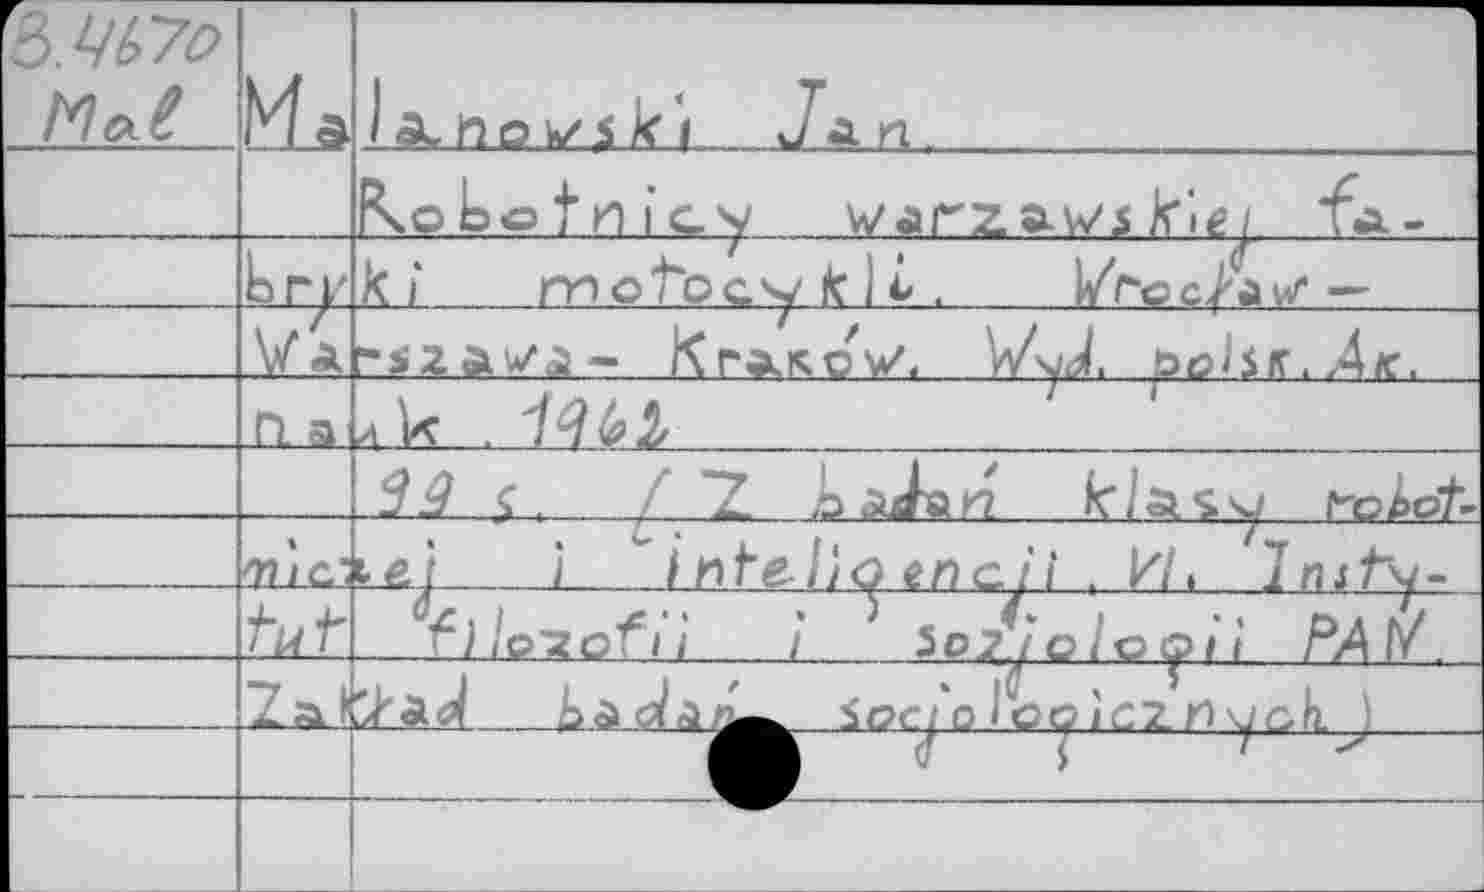 B.4670
Mal Malanowski Jan.
Robotnicy warzawskiej fa-
bryki motocykli. Wrocław -
Warszawa - Kraków. Wyd. polsk. Ak.
nauk. 1962
99 s. (Z badań klasy robot-
niczej i inteligencji. VI. Insty-
tut filozofii i sozjologii PAN.
Zakład badań socjologicznych)